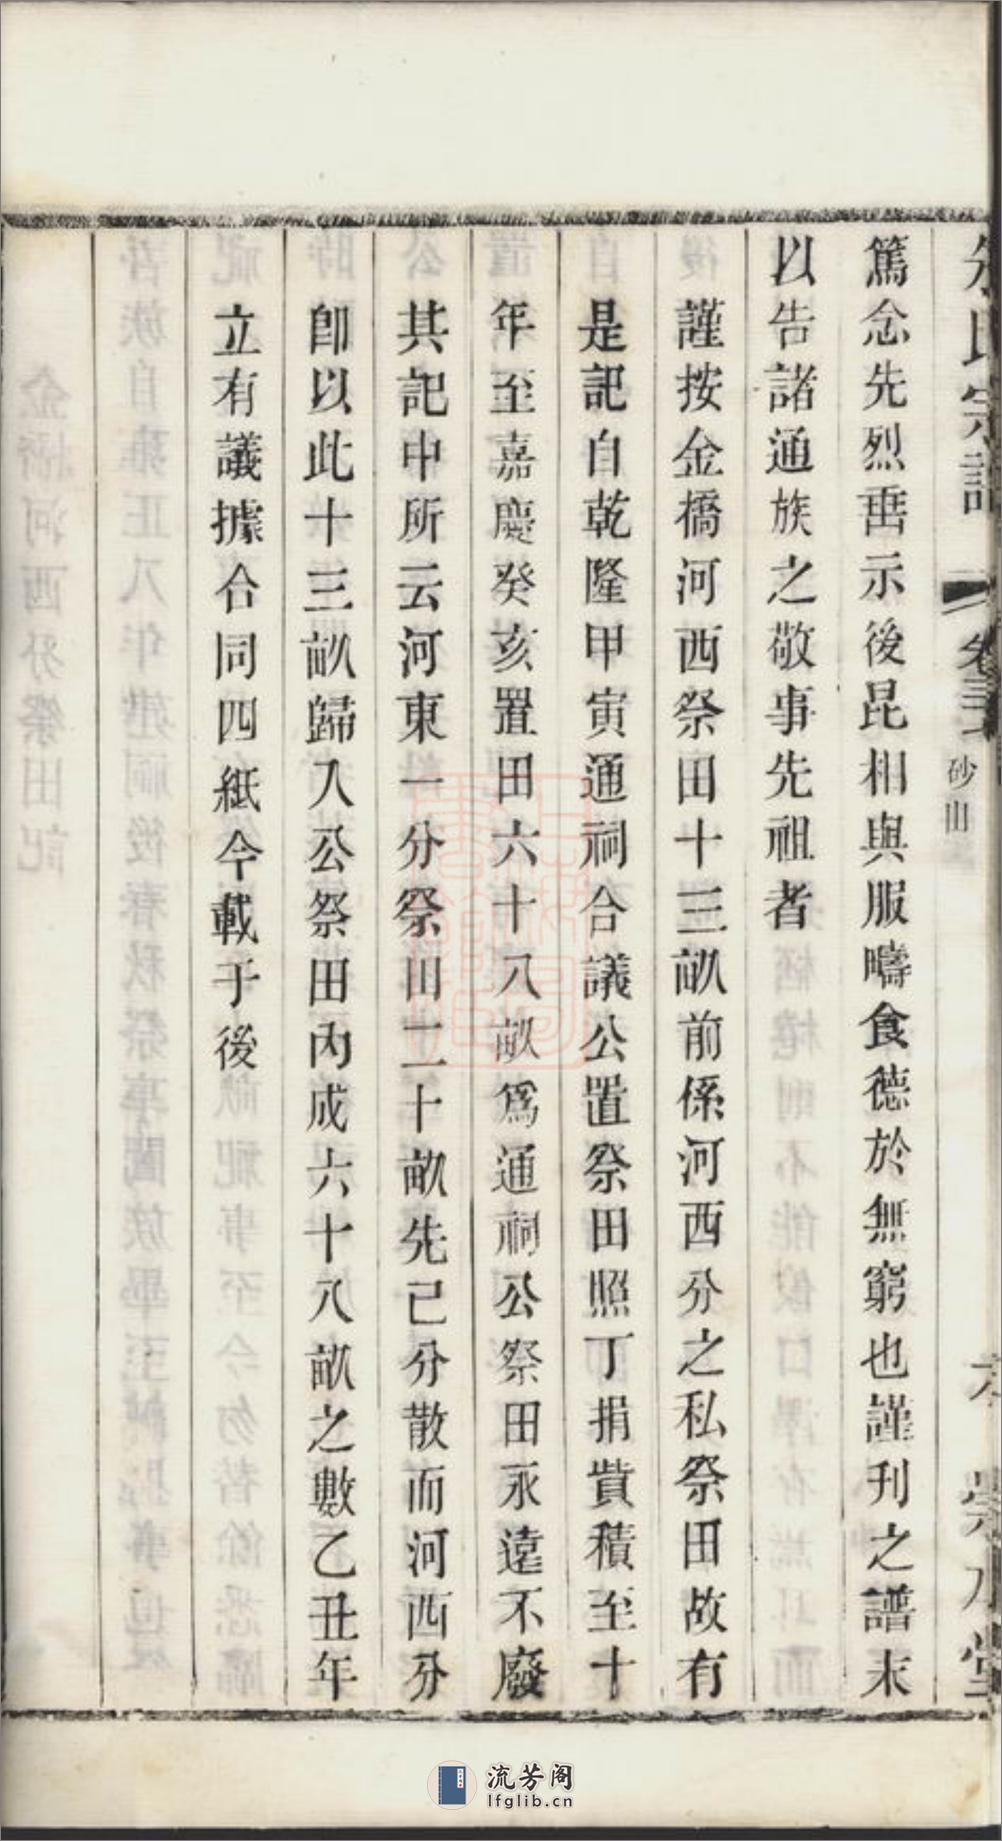 氏宗譜 卷三 砂山
篤念先烈垂示後昆相與服疇食德於無窮也謹刊之譜末
以告諸通族之敬事先祖者
謹按金橋河西祭田十三畝前係河西分之私祭田故有
是記自乾隆甲寅通祠合議公置祭田照丁捐貲積至十
年至嘉慶癸亥置田六十八畝爲通祠公祭田永遠不廢
其記中所云河東一分祭田二十畝先已分散而河西分
卽以此十三畝歸入公祭田內成六十八畝之數乙丑年
立有議據合同四紙今載于後
流芳阁
lfglib.cn